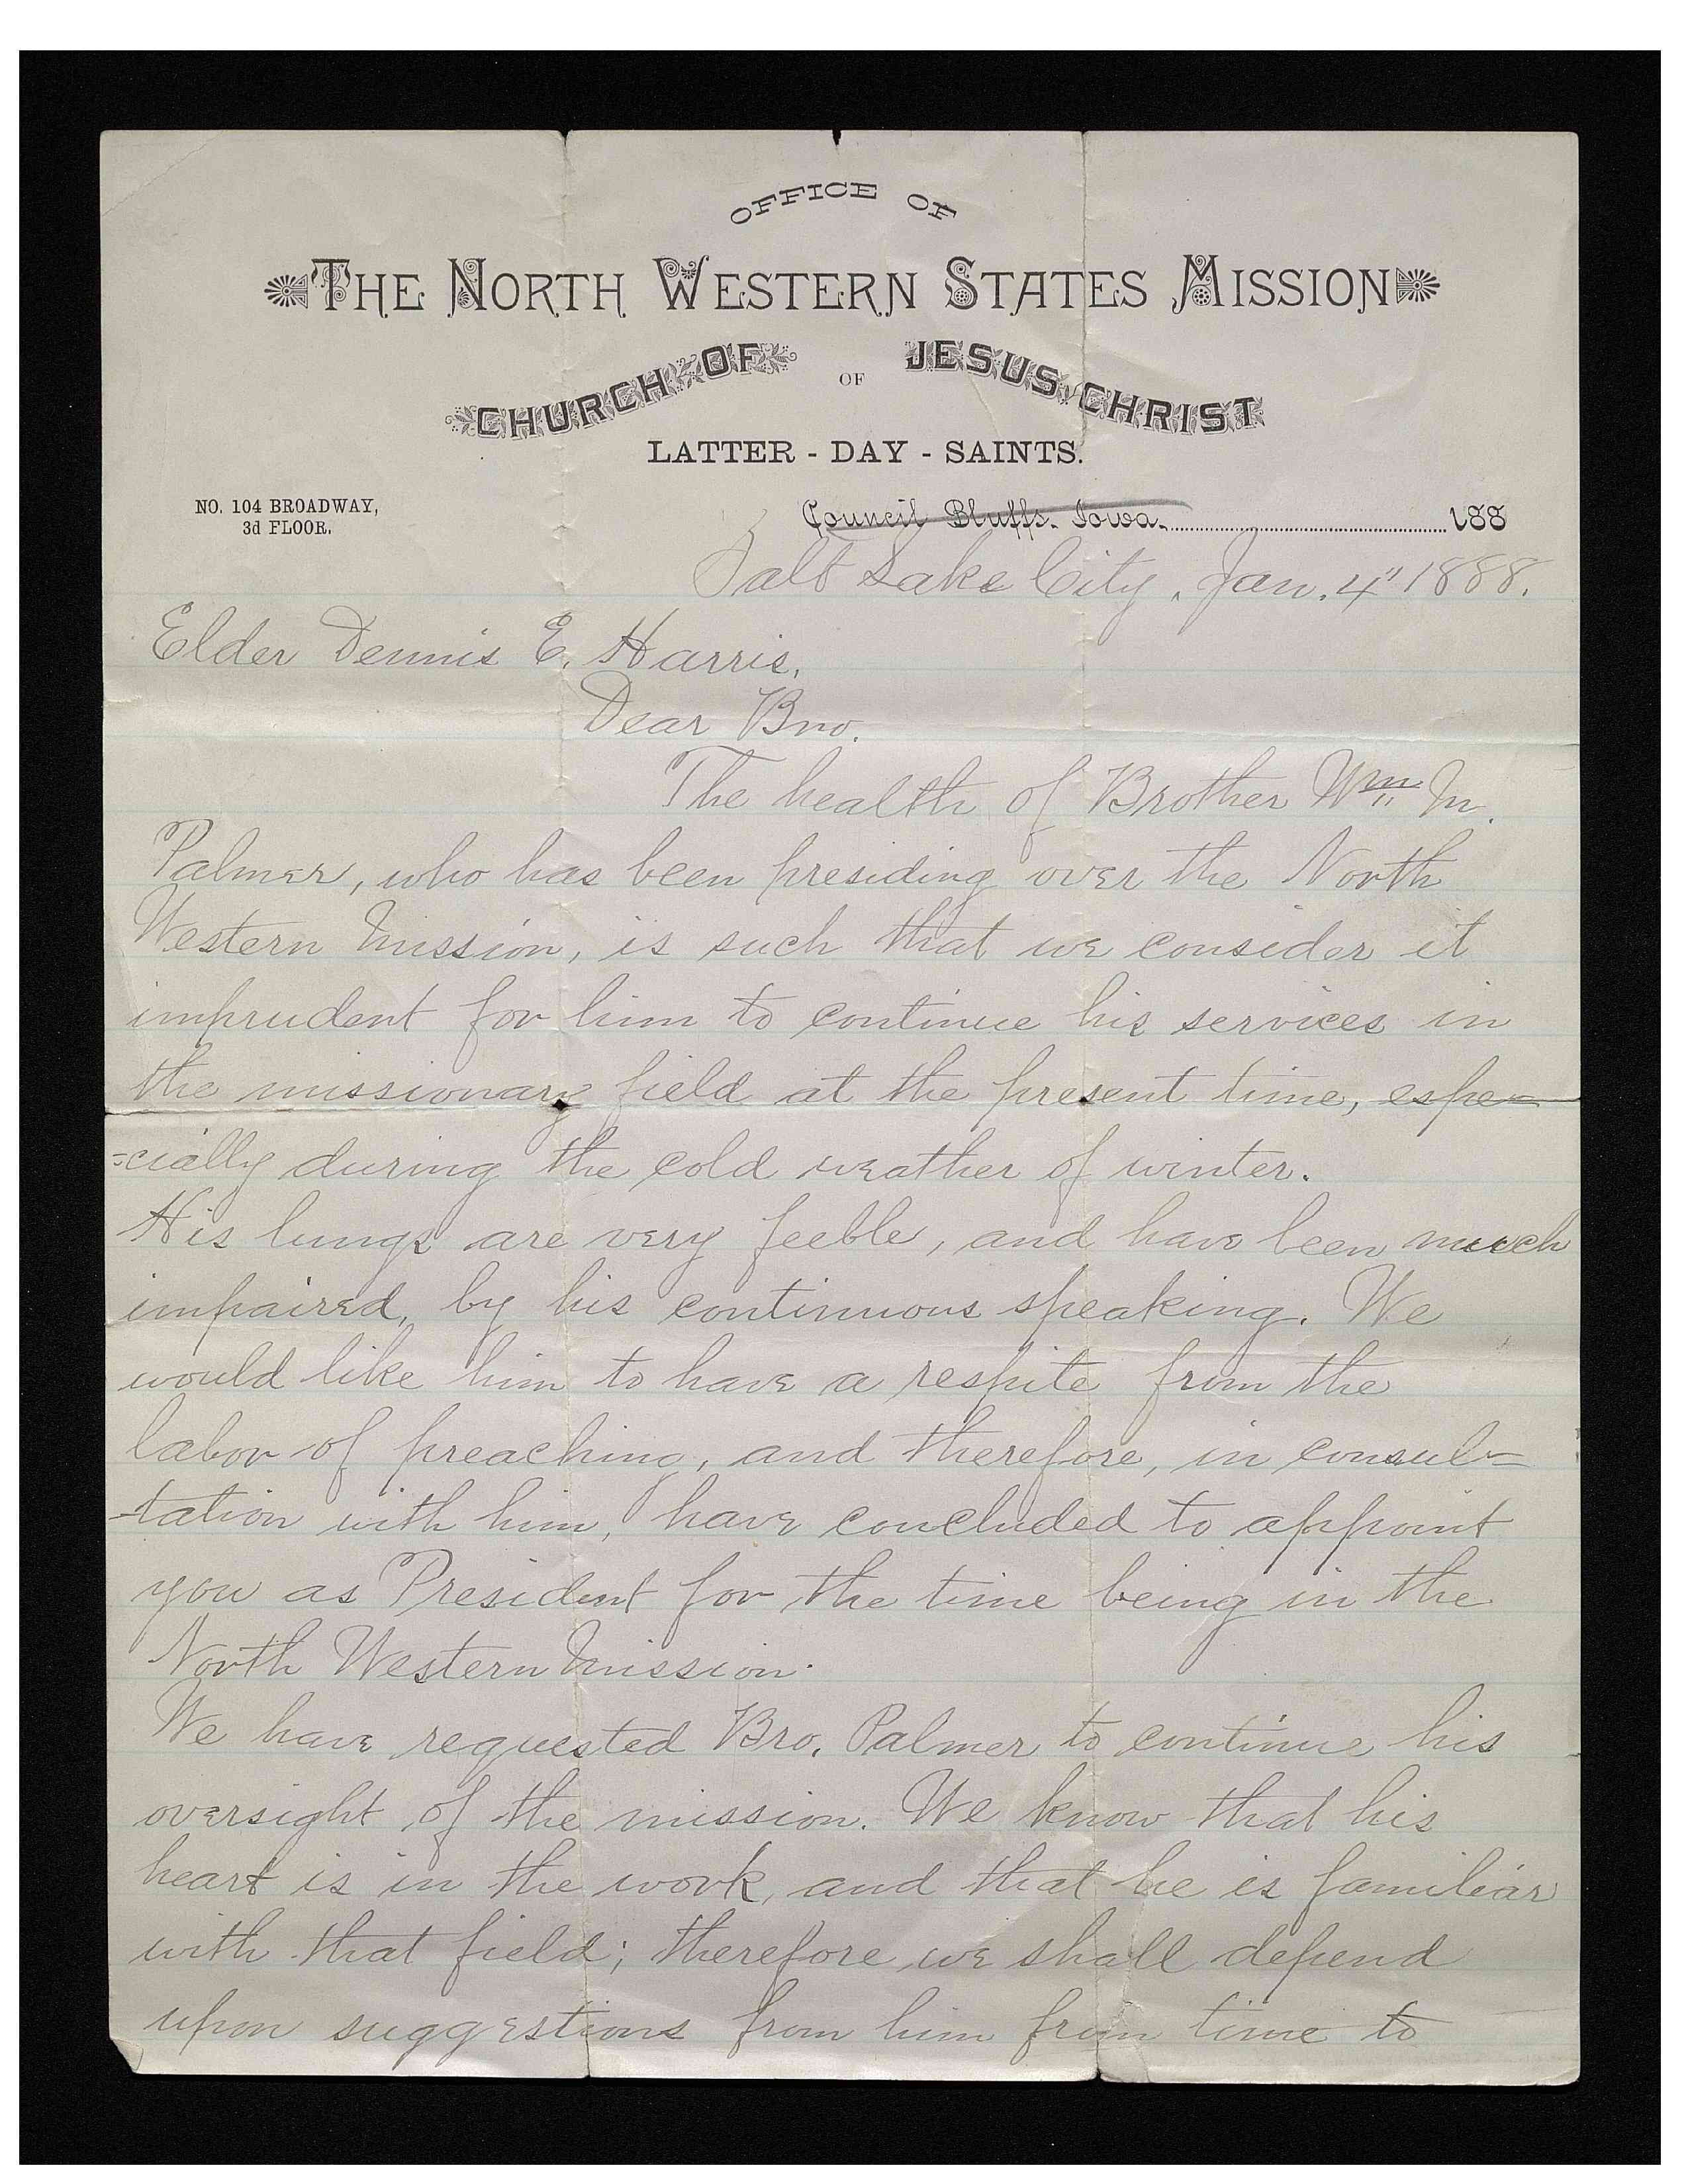 OFFICE OF
THE NORTH WESTERN STATES MISSION
CHURCH OF JESUS CHRIST
OF
LATTER - DAY - SAINTS.
NO. 104 BROADWAY,
3d FLOOR.
Council Bluffs. Iowa. 188
Salt Lake City, Jan. 4" 1888.
Elder Dennis E. Harris,
Dear Bro.
The health of Brother Wm M.
Palmer, who has been presiding over the North
Western Mission, is such that we consider it
imprudent for him to continue his services in
the missionary field at the present time, espe-
=cially during the cold weather of winter.
His lungs are very feeble, and have been much
impaired, by his continuous speaking. We
would like him to have a respite from the
labor of preaching, and therefore, in consul=
-tation with him, have concluded to appoint
you as President for the time being in the
North Western Mission.
We have requested Bro. Palmer to continue his
oversight of the mission. We know that his
heart is in the work, and that he is familiar
with that field; therefore we shall depend
upon suggestions from him from time to